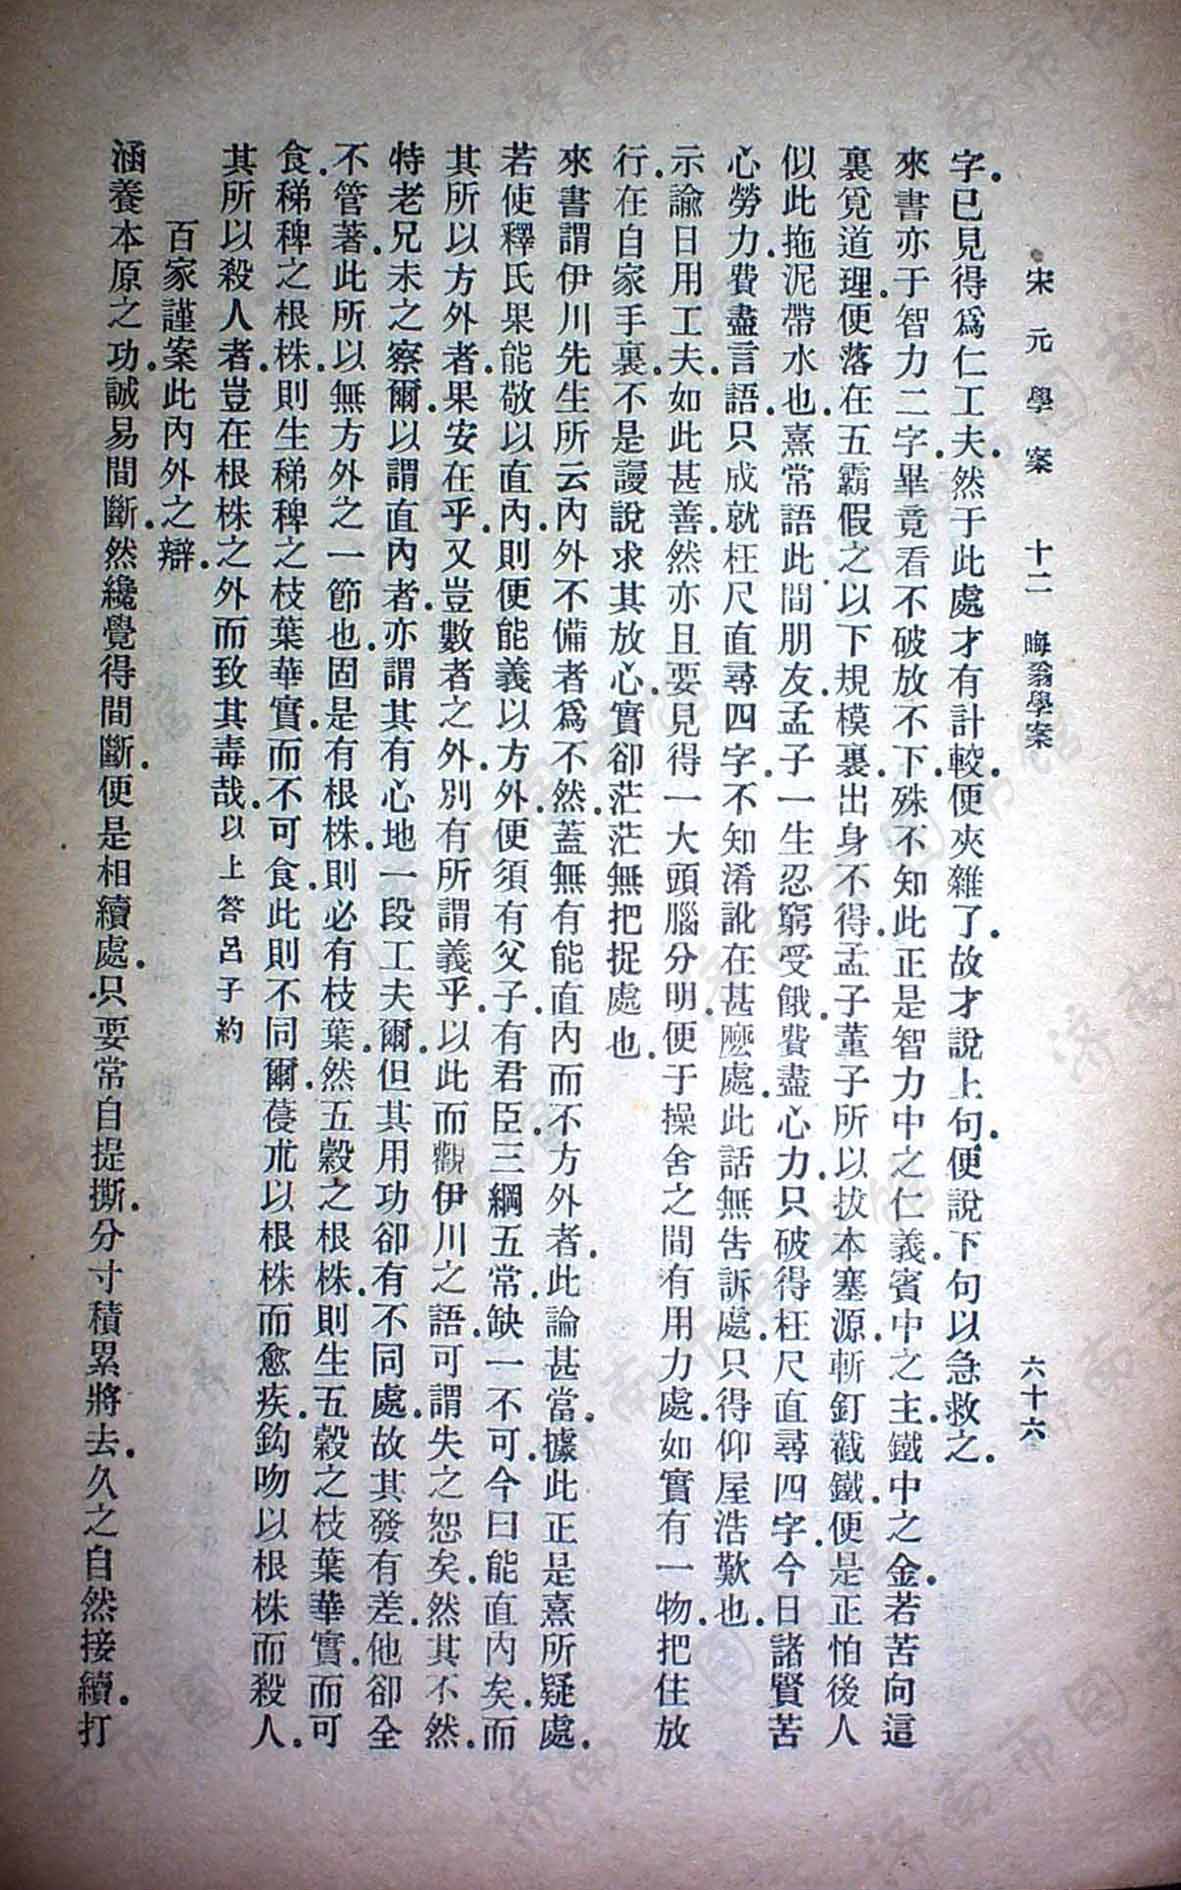 宋元學案 十二 晦翁學案 六十六
字.已見得爲仁工夫.然于此處才有計較.便夾雜了.故才說上句.便說下句以急救之.
來書亦于智力二字.畢竟看不破放不下.殊不知此正是智力中之仁義.賓中之主.鐵中之金.若苦向這
裏覓道理.便落在五霸假之以下規模裏.出身不得.孟子董子所以拔本塞源.斬釘截鐵.便是正怕後人
似此拖泥帶水也.熹常語此間朋友.孟子一生忍窮受餓.費盡心力.只破得枉尺直尋四字.今日諸賢苦
心勞力.費盡言語.只成就枉尺直尋四字.不知淆訛在甚麽處.此話無告訴處.只得仰屋浩歎也.
示諭日用工夫.如此甚善.然亦且要見得一大頭腦分明.便于操舍之間有用力處.如實有一物.把住放
行.在自家手裏.不是謾說求其放心.實卻茫茫無把捉處也.
來書謂伊川先生所云內外不備者爲不然.蓋無有能直內而不方外者.此論甚當.據此正是熹所疑處.
若使釋氏果能敬以直內.則便能義以方外.便須有父子.有君臣.三綱五常.缺一不可.今曰能直內矣.而
其所以方外者.果安在乎.又豈數者之外.別有所謂義乎.以此而觀伊川之語.可謂失之恕矣.然其不然.
特老兄未之察爾.以謂直內者.亦謂其有心地一段工夫爾.但其用功卻有不同處.故其發有差.他卻全
不管著.此所以無方外之一節也.固是有根株.則必有枝葉.然五穀之根株.則生五穀之枝葉華實.而可
食.稊稗之根株.則生稊稗之枝葉華實.而不可食.此則不同爾.蓡朮以根株而愈疾.鈎吻以根株而殺人.
其所以殺人者.豈在根株之外而致其毒哉.以上答呂子約
百家謹案.此內外之辯.
涵養本原之功.誠易間斷.然纔覺得間斷.便是相續處.只要常自提撕.分寸積累將去.久之自然接續.打